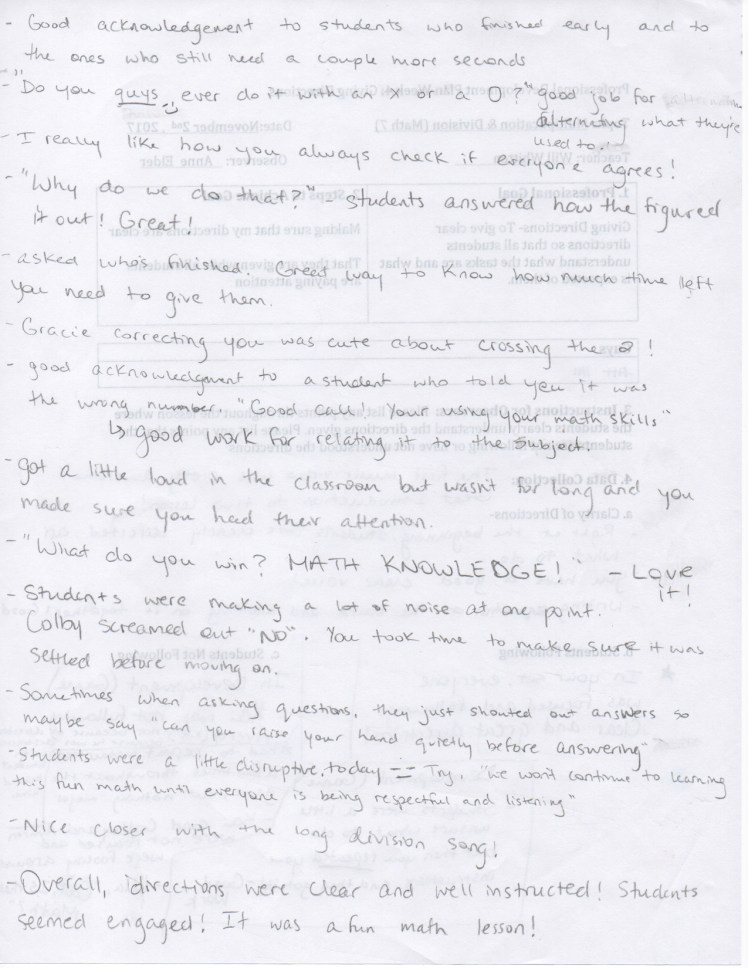 - Good acknowledgement to students who finished early and to
the ones who still need a couple more seconds
- "Do you guys ever do it with an x or a O?" good job for
alternating what they're
used to.
- I really like how you always check if everyone agrees!
- "Why do we do that?" - students answered how the figured
it out! Great!
- asked who's finished. Great way to know how much time left
you need to give them.
- Gracie correcting you was cute about crossing the 2!
- good acknowledgment to a student who told you it was
the wrong number. "Good call! Your using your math skills"
↳ good work for relating it to the subject.
- got a little loud in the classroom but wasn't for long and you
made sure you had their attention.
- "What do you win? MATH KNOWLEDGE!" - Love
it!
- Students were making a lot of noise at one point.
Colby screamed out "NO". You took time to make sure it was
settled before moving on.
- Sometimes when asking questions, they just shouted out answers so
maybe say "can you raise your hand quietly before answering"
- Students were a little disruptive today -- Try, "we won't continue to learning
this fun math until everyone is being respectful and listening"
- Nice closer with the long division song!
- Overall, directions were clear and well instructed! Students
seemed engaged! It was a fun math lesson!